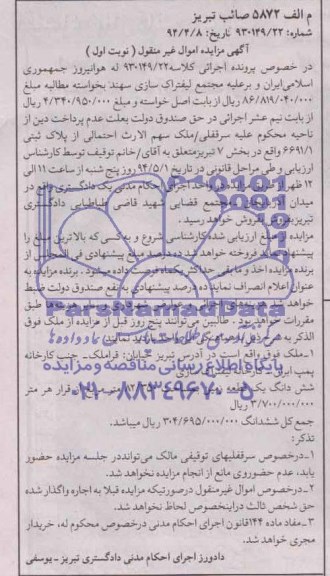 م الف ۵۸۷۲ صائب تبریز
شماره: ۹۳۰۱۴۹/۲۲ تاریخ: ۹۴/۴/۸
آگهی مزایده اموال غیر منقول ( نوبت اول )
در خصوص پرونده اجرائی کلاسه ۹۳۰۱۴۹/۲۲ له هوانیروز جمهوری
اسلامی ایران و برعلیه مجتمع لیفتراک سازی سهند بخواسته مطالبه مبلغ
۸۶/۸۱۹/۰۴۰/۰۰۰ ریال از بابت اصل خواسته و مبلغ ۴/۳۴۰/۹۵۰/۰۰۰ ریال
از بابت نیم عشر اجرائی در حق صندوق دولت بعلت عدم پرداخت دین از
ناحیه محکوم علیه سرقفلی/ملک سهم الارث احتمالی از پلاک ثبتی
۶۶۹۱/۱ واقع در بخش ۷ تبریز متعلق به آقای/خانم توقیف توسط کارشناس
ارزیابی و طی مراحل قانونی در تاریخ ۹۴/۵/۱ روز پنج شنبه از ساعت ۱۱ الی
۱۲ ظهر از طریق مزایده در واحد اجرای احکام مدنی یک دادگستری واقع در
میدان مجتمع قضایی شهید قاضی طباطبایی دادگستری
تبریز بفروش بفروش خواهد رسید.
مزایده از مبلغ ارزیابی شده کارشناسی شروع و به کسی که بالاترین مبلغ را
پیشنهاد نماید فروخته خواهد شد ده درصد مبلغ پیشنهادی فی المجلس از
برنده مزایده اخذ و مابقی حداکثر یکماه فرصت داده میشود. برنده مزایده به
عنوان اعلام انصراف نماید ده درصد پیشنهادی به نفع صندوق دولت ضبط
خواهد شد هزینه های اجرائی
مقررات خواهد بود. طالبین می توانند پنج روز قبل از مزایده از ملک فوق
الذکر
۱-ملک فوق واقع است در آدرس تبریز خیابان: قراملک- جنب کارخانه
پمپ ایران - کارخانه لیفتراک سازی
شش دانگ یک قطعه متر مربع از قرار هر متر
۳/۷۰۰/۰۰۰/۰۰۰ ریال
جمع کل ششدانگ ۳۰۴/۶۹۵/۰۰۰/۰۰۰ ریال میباشد.
تذکر:
۱-درخصوص سرقفلیهای توقیفی مالک می تواند در جلسه مزایده حضور
یابد، عدم حضور وی مانع از انجام مزایده نخواهد شد.
۲-درخصوص اموال غیر منقول درصورتیکه مزایده قبلا به اجاره واگذار شده
حق شخص ثالث دراینخصوص لحاظ نخواهد شد.
۳-مفاد ماده ۱۴۴ قانون اجرای احکام مدنی درخصوص محکوم له، خریدار
مجری خواهد شد.
دادورز اجرای احکام مدنی دادگستری تبریز - یوسفی
ParsNamadData
پایگاه اطلاع رسانی مناقصه و مزایده
۰۲۱-۸۸۳۴۹۶۷۰-۵